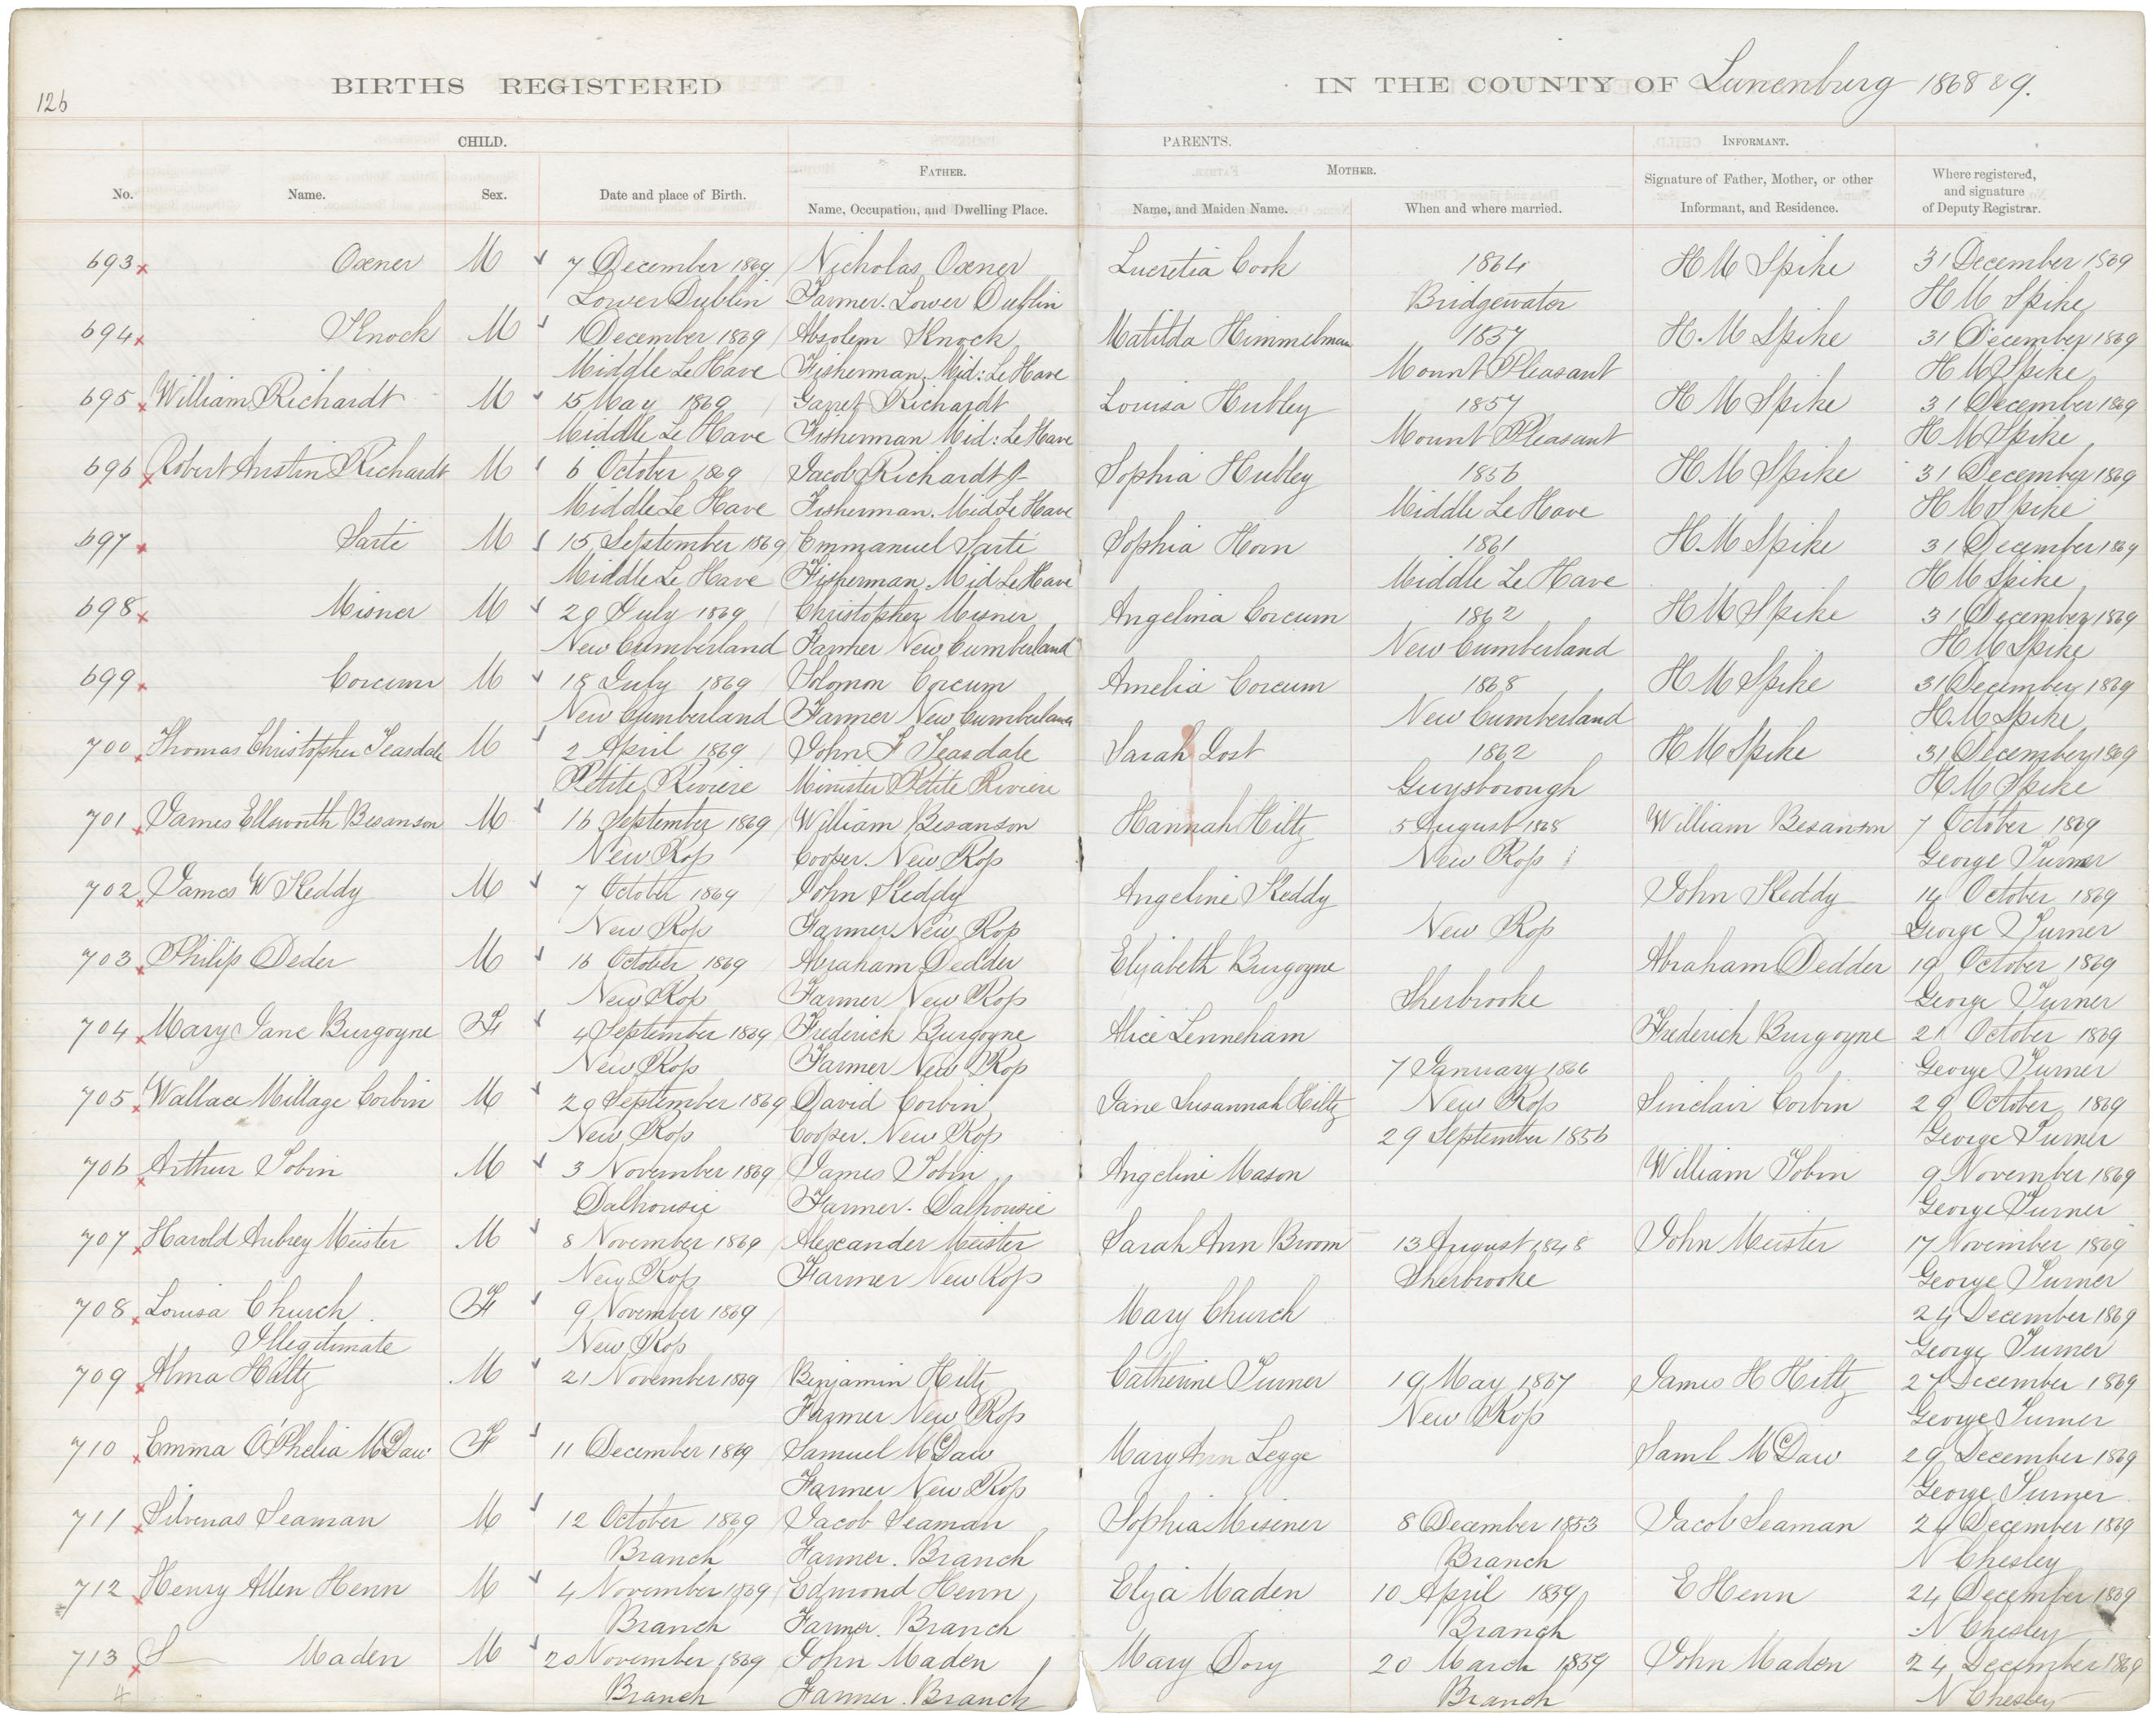 126
BIRTHS REGISTERED IN THE COUNTY OF Lunenburg 1868 & 9.
CHILD. PARENTS. INFORMANT.
FATHER. MOTHER.
No. Name. Sex. Date and place of Birth. Name, Occupation, and Dwelling Place. Name, and Maiden Name. When and where married. Signature of Father, Mother, or other Informant, and Residence. Where registered, and signature of Deputy Registrar.
693 Oxner M 7 December 1869 Nicholas Oxner Lucretia Cook 1864 H M Spike 31 December 1869
Lower Dublin Farmer. Lower Dublin Bridgewater H M Spike
694 Knock M 1 December 1869 Absolem Knock Matilda Himmelman 1857 H. M Spike 31 December 1869
Middle Le Have Fisherman Mid: Le Have Mount Pleasant H M Spike
695 William Richardt M 15 May 1869 Garret Richardt Louisa Hubley 1857 H M Spike 31 December 1869
Middle Le Have Fisherman Mid: Le Have Mount Pleasant H M Spike
696 Robert Austin Richardt M 6 October 1869 Jacob Richardt Sophia Hubley 1856 H M Spike 31 December 1869
Middle Le Have Fisherman. Mid Le Have Middle Le Have H M Spike
697 Sarti M 15 September 1869 Emmanuel Sarti Sophia Horn 1861 H. M Spike 31 December 1869
Middle Le Have Fisherman Mid Le Have Middle Le Have H M Spike
698 Misner M 29 July 1869 Christopher Misner Angelina Corcum 1862 H M Spike 31 December 1869
New Cumberland Farmer New Cumberland New Cumberland H M Spike
699 Corcum M 18 July 1869 Solomon Corcum Amelia Corcum 1868 H M Spike 31 December 1869
New Cumberland Farmer New Cumberland New Cumberland H. M Spike
700 Thomas Christopher Teasdale M 2 April 1869 John S Teasdale Sarah Jost 1862 H M Spike 31 December 1869
Petite Riviere Minister Petite Riviere Guysborough H M Spike
701 James Ellsworth Besanson M 16 September 1869 William Besanson Hannah Hiltz 5 August 1868 William Besanson 7 October 1869
New Ross Cooper. New Ross New Ross George Turner
702 James W Keddy M 7 October 1869 John Keddy Angeline Keddy John Keddy 14 October 1869
New Ross Farmer New Ross New Ross George Turner
703 Philip Deder M 16 October 1869 Abraham Dedder Elizabeth Burgoyne Abraham Dedder 19 October 1869
New Ross Farmer New Ross Sherbrooke George Turner
704 Mary Jane Burgoyne F 4 September 1869 Frederick Burgoyne Alice Lenneham Frederick Burgoyne 21 October 1869
New Ross Farmer New Ross 7 January 1866 George Turner
705 Wallace Millage Corbin M 29 September 1869 David Corbin Jane Susannah Hiltz New Ross Sinclair Corbin 29 October 1869
New Ross Cooper. New Ross 29 September 1856 George Turner
706 Arthur Tobin M 3 November 1869 James Tobin Angeline Mason William Tobin 9 November 1869
Dalhousie Farmer. Dalhousie George Turner
707 Harold Aubrey Meister M 8 November 1869 Alexander Meister Sarah Ann Broom 13 August 1848 John Meister 17 November 1869
New Ross Farmer New Ross Sherbrooke George Turner
708 Louisa Church F 9 November 1869 Mary Church 24 December 1869
Illegitimate New Ross George Turner
709 Alma Hiltz M 21 November 1869 Benjamin Hiltz Catherine Turner 19 May 1867 James H Hiltz December 1869
Farmer New Ross New Ross George Turner
710 Emma O'Phelia McDaw F 11 December 1869 Samuel McDaw Mary Ann Legge Saml McDaw 29 December 1869
Farmer New Ross George Turner
711 Silvenas Seaman M 12 October 1869 Jacob Seaman Sophia Misener 8 December 1853 Jacob Seaman 24 December 1869
Branch Farmer. Branch Branch N Chesley
712 Henry Allen Henn M 4 November 1869 Edmond Henn Eliza Maden 10 April 1859 E Henn 24 December 1869
Branch Farmer. Branch Branch N Chesley
713 S Maden M 20 November 1869 John Maden Mary Dory 20 March 1859 John Maden 24 December 1869
4 Branch Farmer. Branch Branch N Chesley